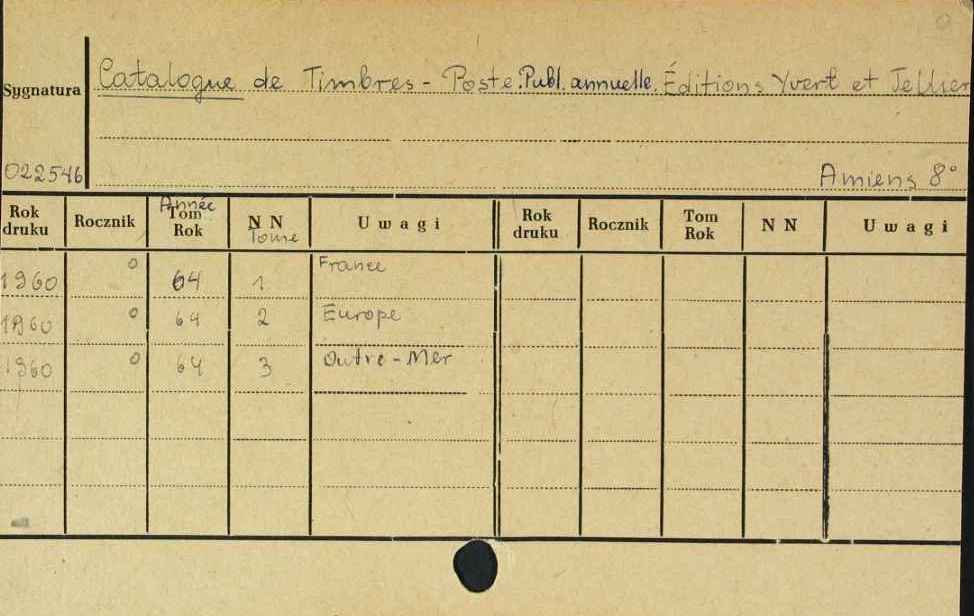 Catalogue de Timbres - Poste. Publ. annuelle. Éditions Yvert et Tellier
Sygnatura
022546
Amiens 8°
Rok druku Rocznik Année Tom Rok NN Tome Uwagi Rok druku Rocznik Tom Rok NN Uwagi
1960 0 64 1 France
1960 0 64 2 Europe
1960 0 64 3 Outre-Mer